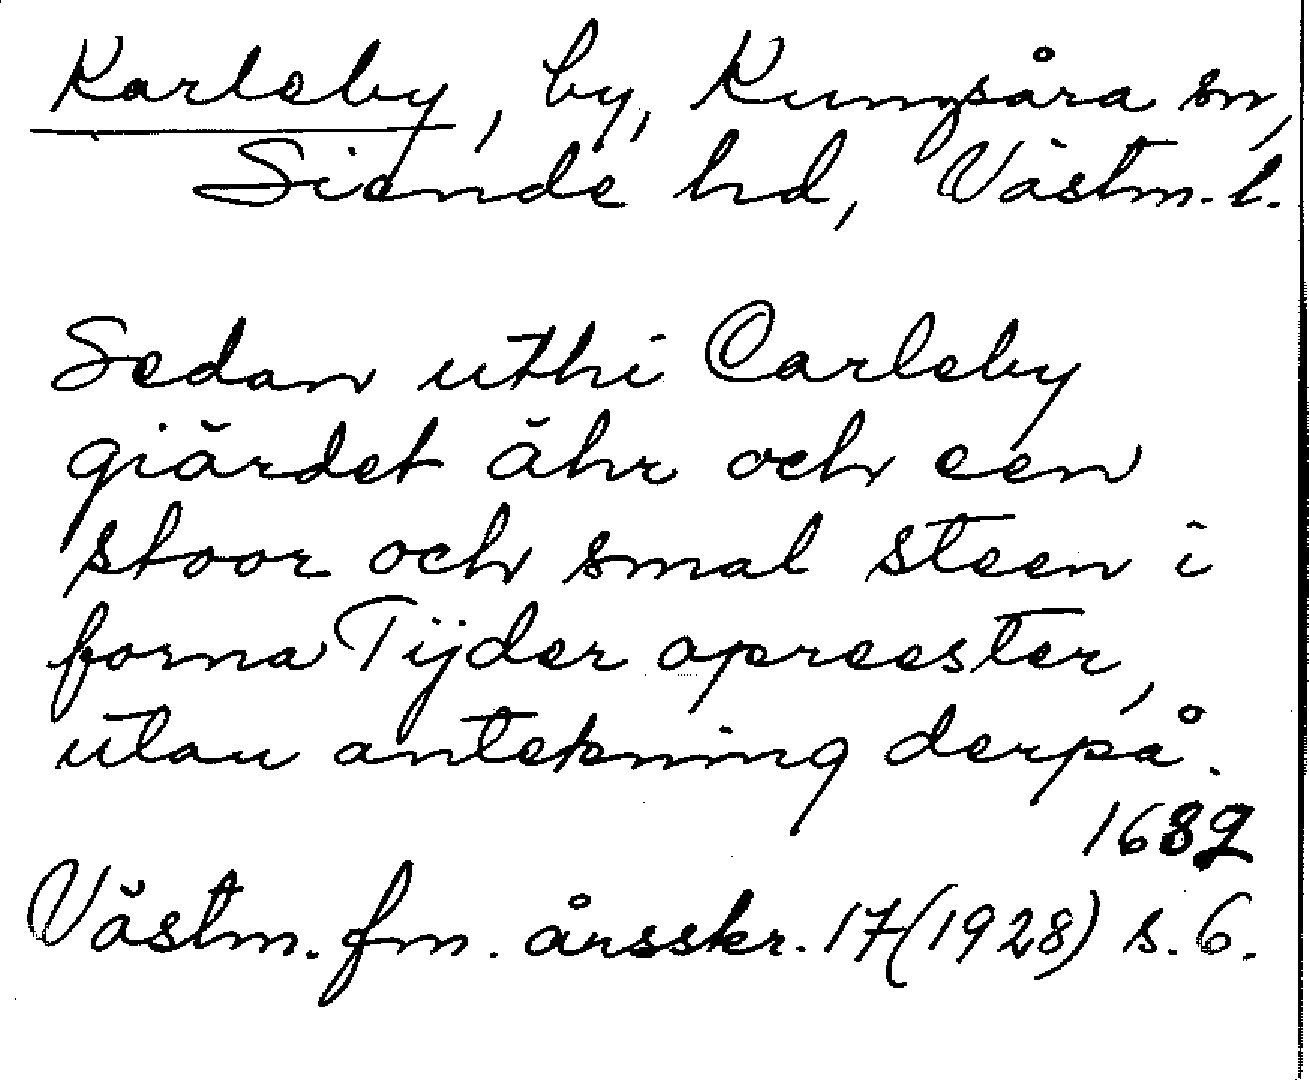 Karleby, by, Kungsåra sn,
Siende hd, Västm. l.
Sedan uthi Carleby
giärdet ähr och een
stoor och smal steen i
forna Tijder opreester,
utan antekning derpå.
1682
Västm. fm. årsskr. 17 (1928) s. 6.